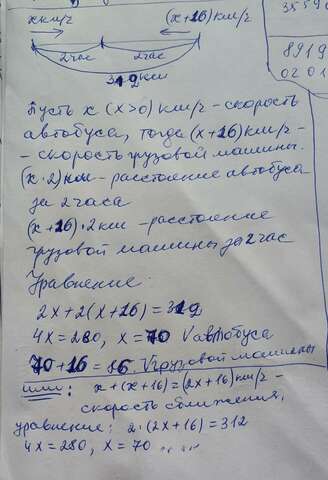 x км/г (x+16) км/г
2час 2час
312 км
3559
8919
020
Пусть x (x>0) км/г - скорость
автобуса, тогда (x+16) км/г -
- скорость грузовой машины.
(x·2) км - расстояние автобуса
за 2 часа
(x+16)·2 км - расстояние
грузовой машины за 2 час
Уравнение:
2x+2(x+16)=312
4x=280, x=70 V автобуса
70+16=86. V грузовой машины
или: x+(x+16)=(2x+16) км/г -
скорость сближения,
уравнение: 2·(2x+16)=312
4x=280, x=70 ....